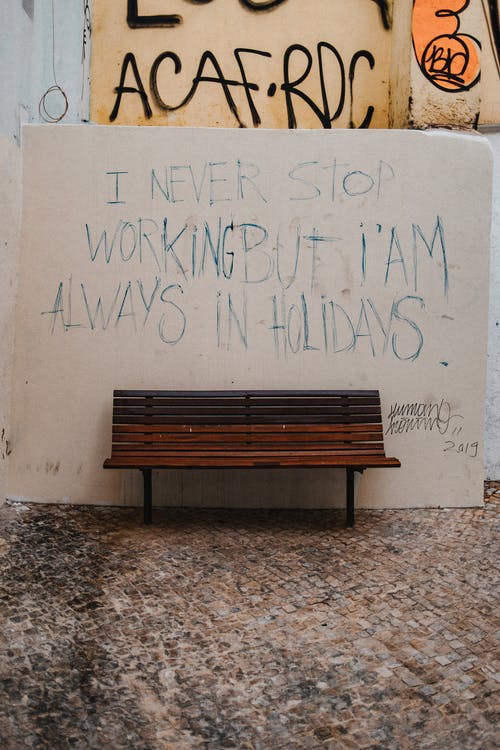 ACAF·RDC
I NEVER STOP
WORKING BUT I'AM
ALWAYS IN HOLIDAYS.
2019